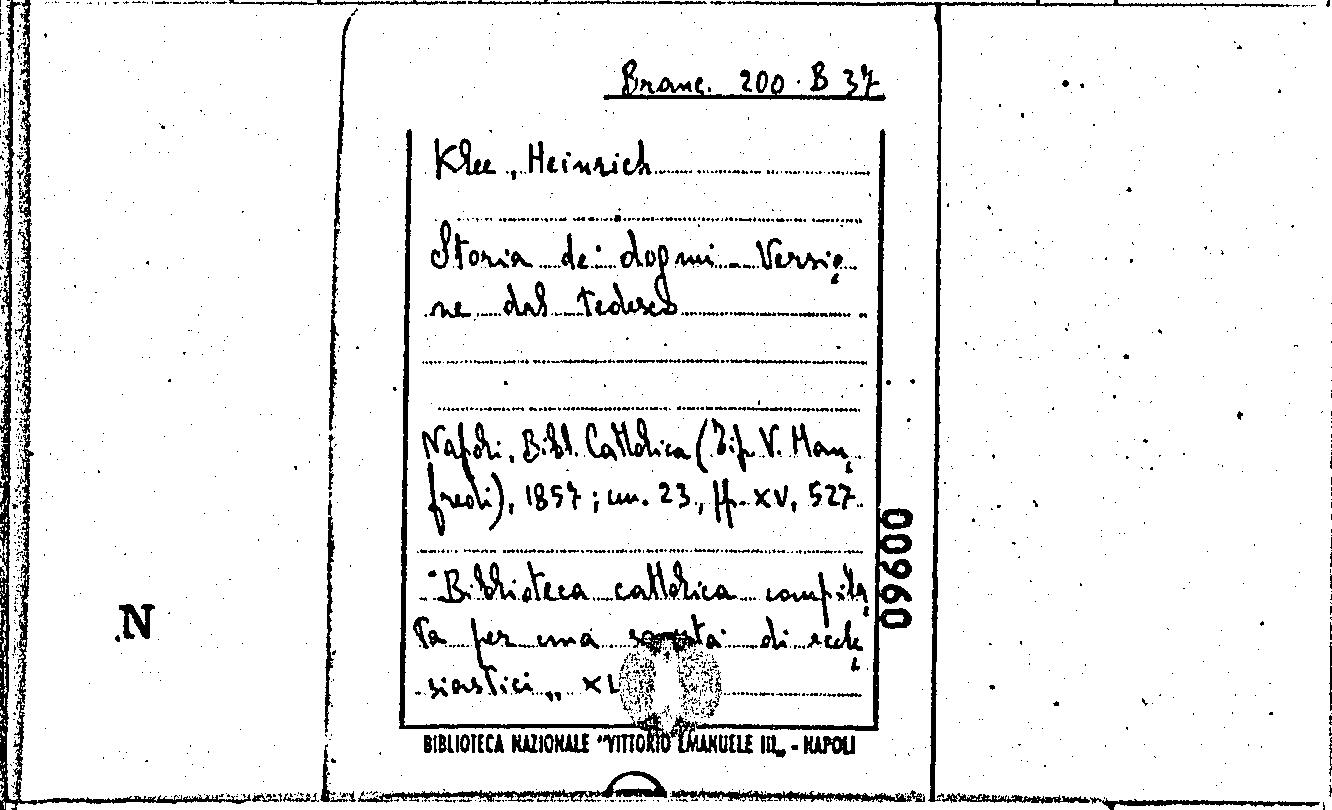 Branc. 200 · B 37
Klee, Heinrich
Storia de' dogmi - Versio
ne dal tedesco
Napoli, Bibl. Cattolica (Tip. V. Man
fredi), 1857; cm. 23, pp. XV, 527
"Biblioteca cattolica compila
ta per una società di eccle
siastici„ XL
00960
N
BIBLIOTECA NAZIONALE "VITTORIO EMANUELE III„ - NAPOLI